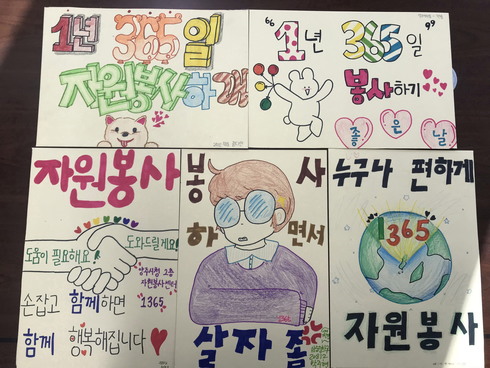 1년 365일
자원봉사하기
"1년 365일"
봉사하기
좋은 날
자원봉사
도움이 필요해요!
도와드릴게요!
손잡고 함께하면
1365
함께 행복해집니다
봉사
하면서
살자좀
누구나 편하게
1365
자원봉사